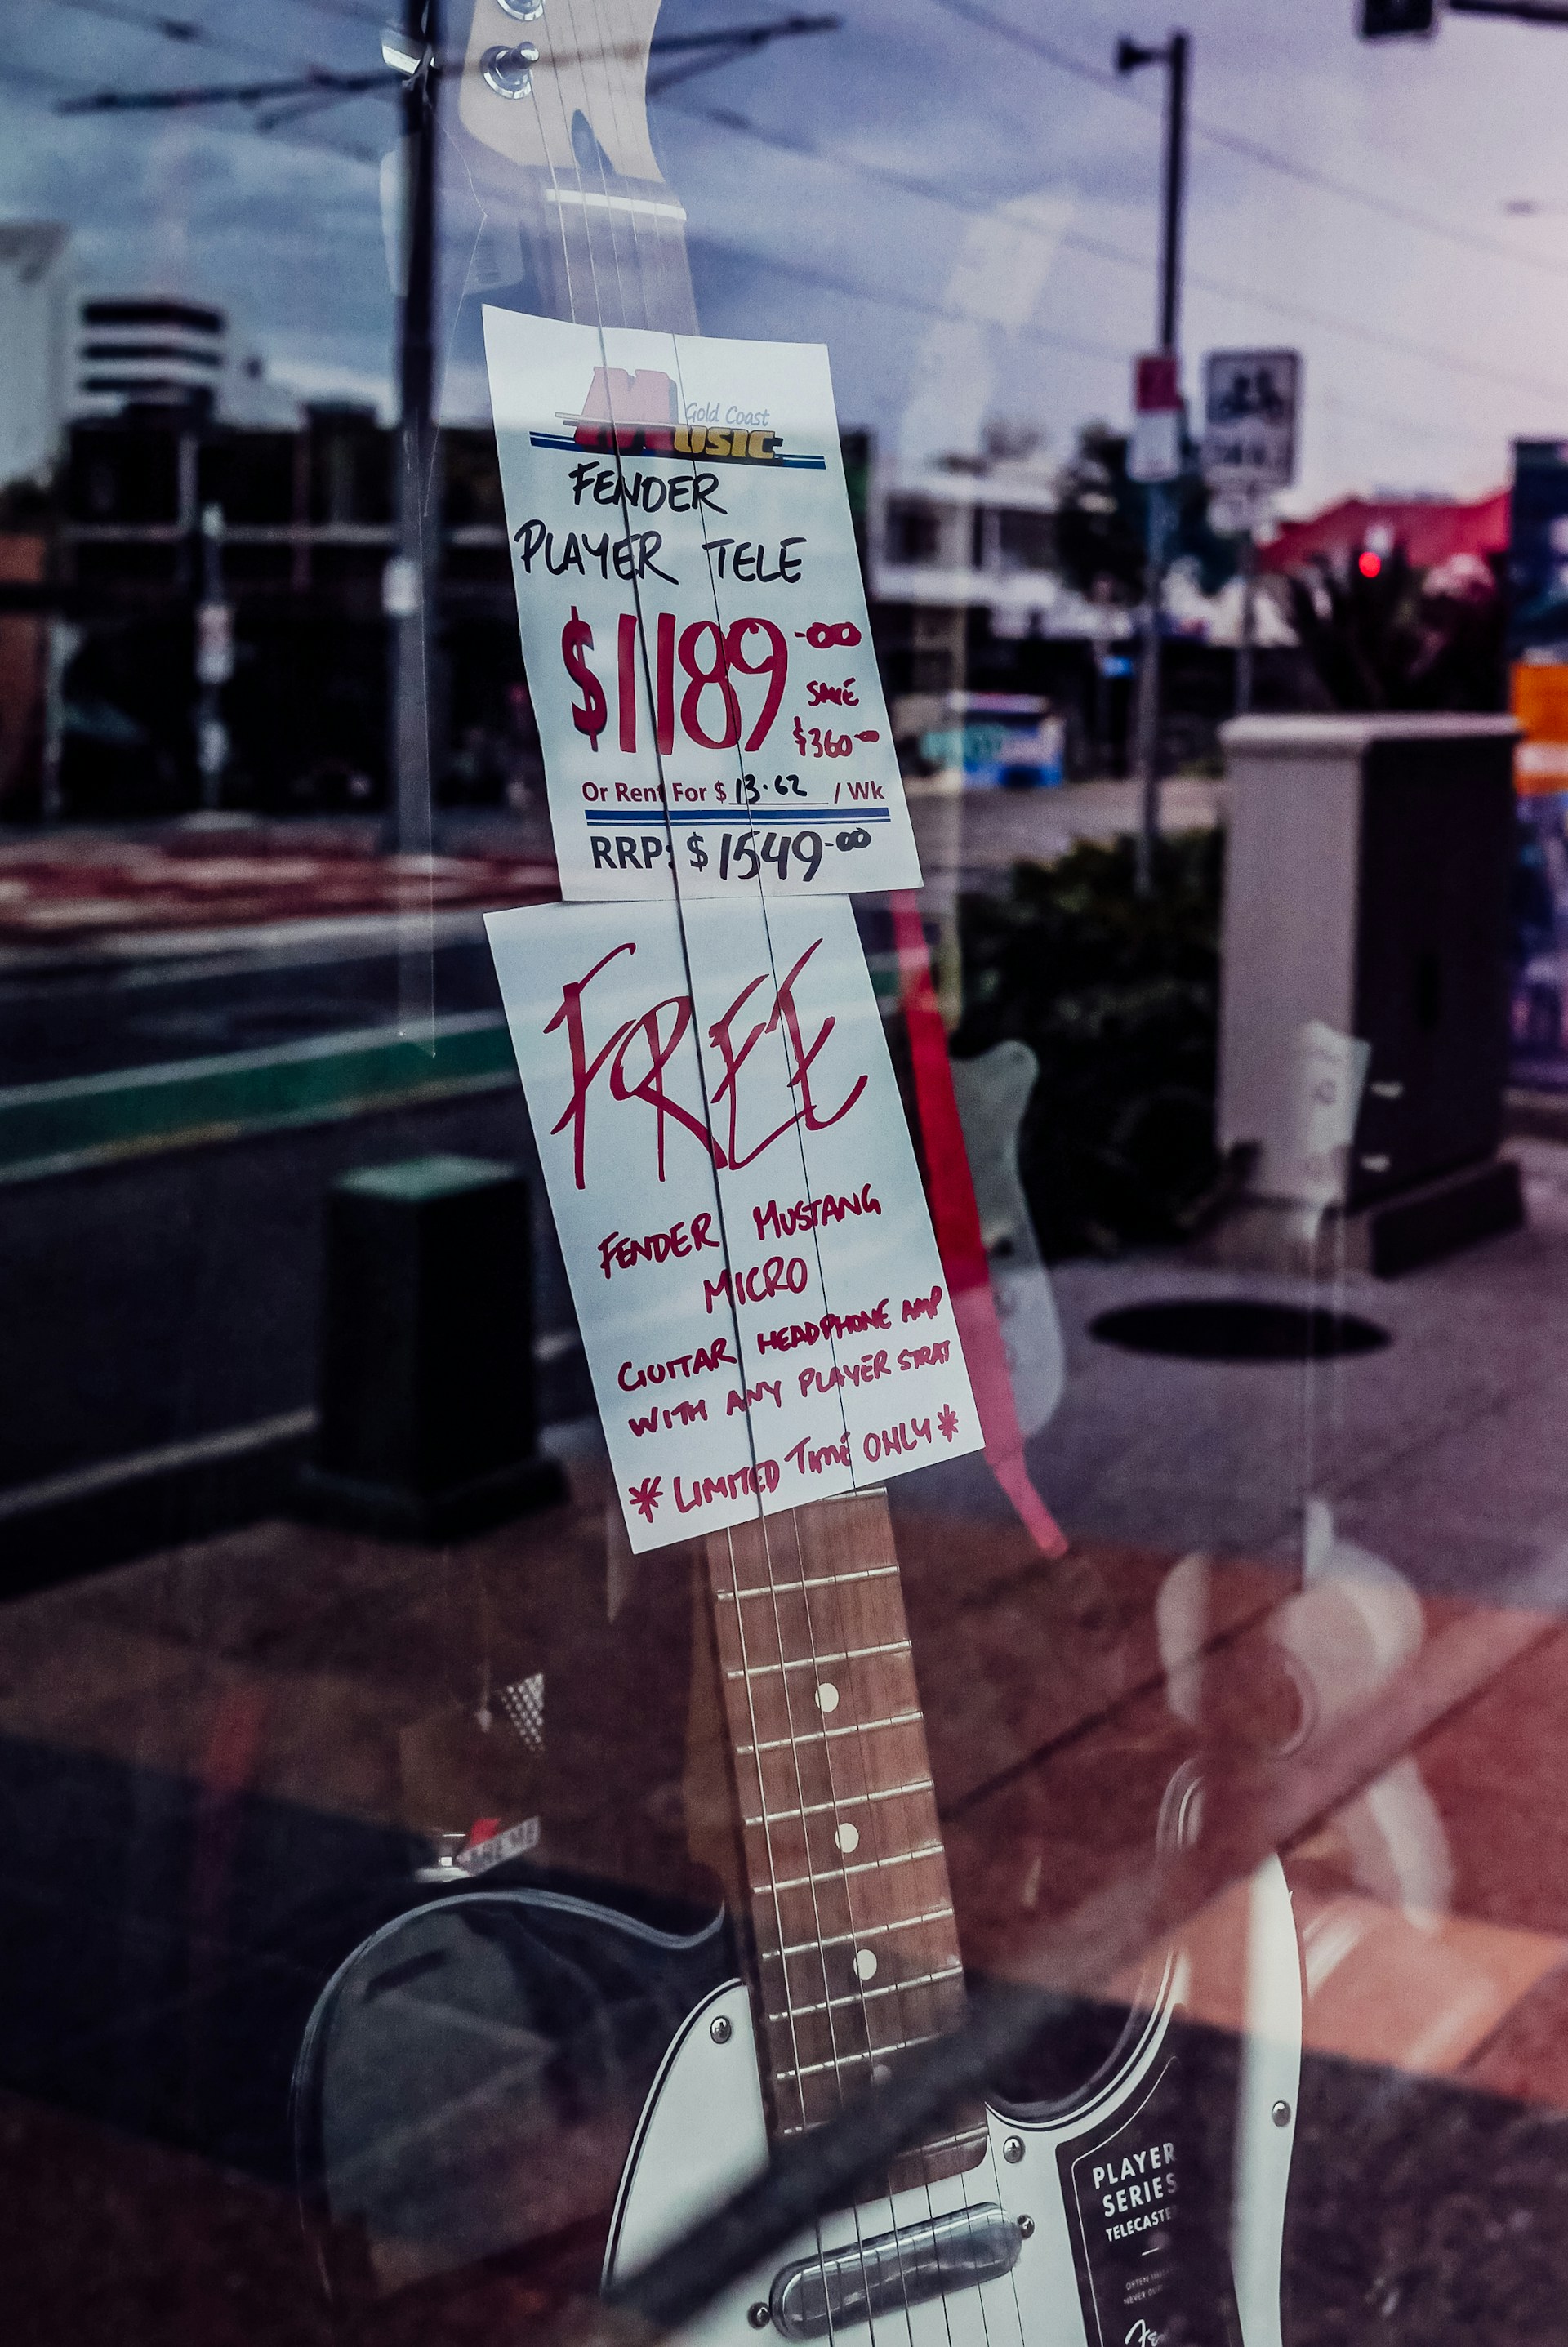 Gold Coast
Music
FENDER
PLAYER TELE
$1189-00
SAVE
$360-00
Or Rent For $ 13.62 / Wk
RRP: $ 1549-00
FREE
FENDER MUSTANG
MICRO
GUITAR HEADPHONE AMP
WITH ANY PLAYER STRAT
* LIMITED TIME ONLY *
PLAYER
SERIES
TELECASTE